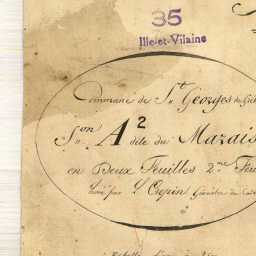 35
Ille-et-Vilaine
Commune de St. Georges de
Son A2 dite du Marais
en Deux Feuilles 2me
Levé par L. Crepin Géomètre du